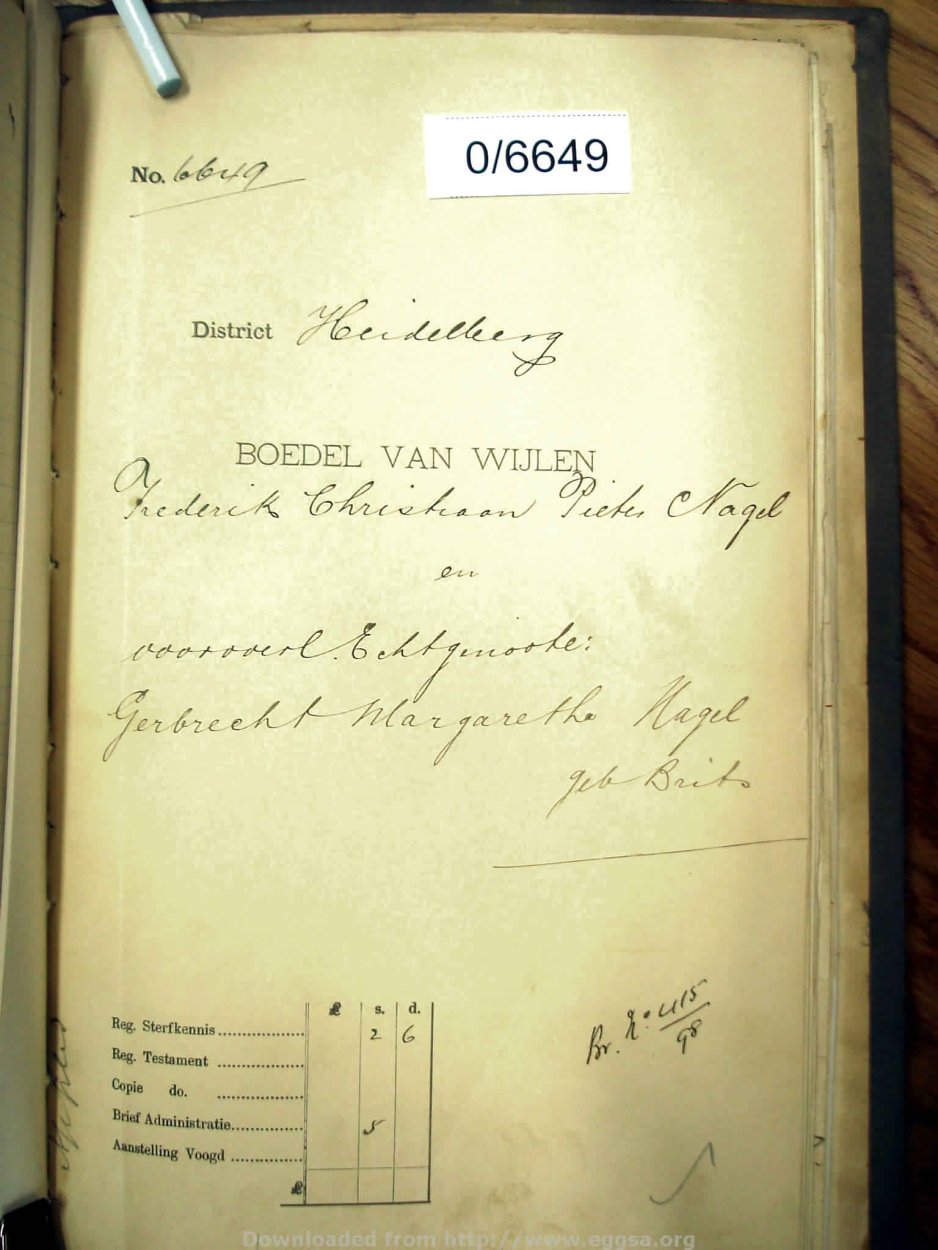 0/6649
No. 6649
District Heidelberg
BOEDEL VAN WIJLEN
Frederik Christiaan Pieter Nagel
en
vooroverl. Echtgenoote:
Gerbrecht Margaretha Nagel
geb Brits
£ s. d.
Reg. Sterfkennis 2 6
Reg. Testament
Copie do.
Brief Administratie 5
Aanstelling Voogd
£
Br. No. 415/98
Downloaded from http://www.eggsa.org